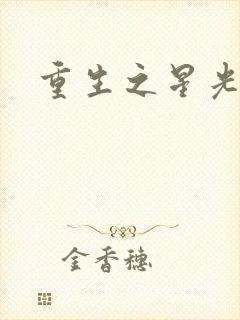 重生之星光
金香穗